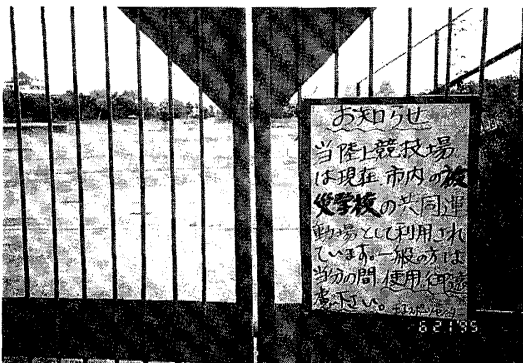 お知らせ
当陸上競技場
は現在市内の被
災学校の共同運
動場として利用され
ています。一般の方は
当分の間使用御遠
慮下さい。
6 21 '95